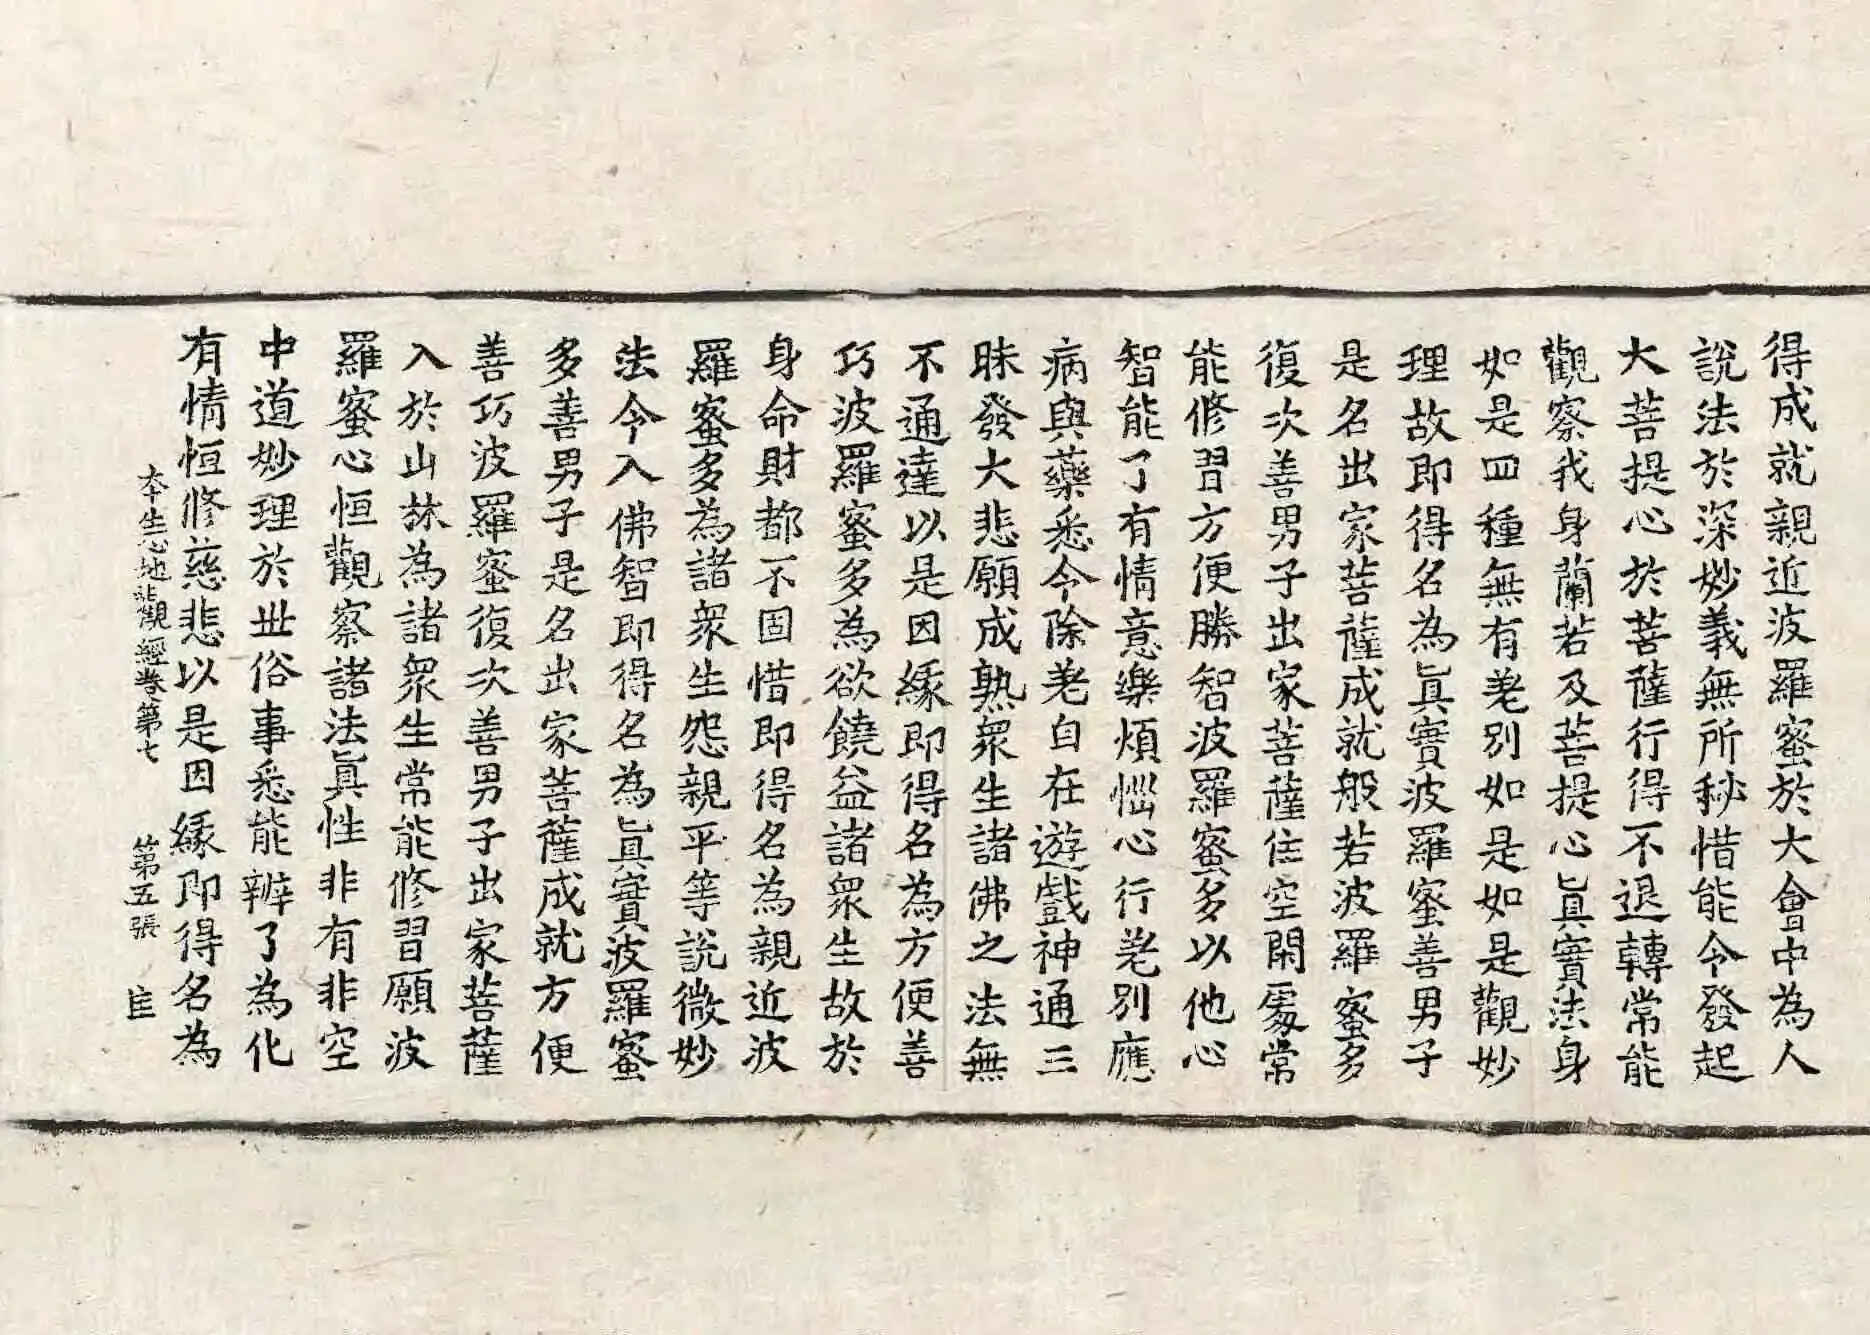 得成就親近波羅蜜於大會中為人
說法於深妙義無所秘惜能令發起
大菩提心於菩薩行得不退轉常能
觀察我身蘭若及菩提心眞實法身
如是四種無有差別如是如是觀妙
理故即得名為眞實波羅蜜善男子
是名出家菩薩成就般若波羅蜜多
復次善男子出家菩薩住空閑處常
能修習方便勝智波羅蜜多以他心
智能了有情意樂煩惱心行差別應
病與藥悉令除差自在遊戲神通三
昧發大悲願成熟衆生諸佛之法無
不通達以是因緣即得名為方便善
巧波羅蜜多為欲饒益諸衆生故於
身命財都不固惜即得名為親近波
羅蜜多為諸衆生怨親平等說微妙
法令入佛智即得名為眞實波羅蜜
多善男子是名出家菩薩成就方便
善巧波羅蜜復次善男子出家菩薩
入於山林為諸衆生常能修習願波
羅蜜心恒觀察諸法眞性非有非空
中道妙理於世俗事悉能辦了為化
有情恒修慈悲以是因緣即得名為
本生心地觀經卷第七 第五張